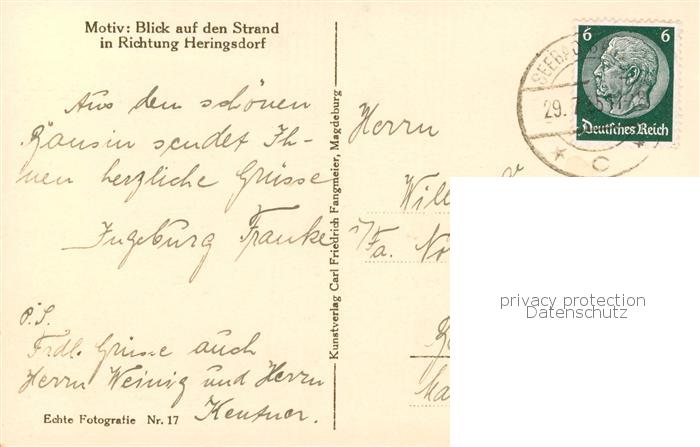 Motiv: Blick auf den Strand
in Richtung Heringsdorf
Aus dem schönen
Bansin sendet Ih-
nen herzliche Grüsse
Ingeburg Franke
P.S.
Frdl. Grüsse auch
Herrn Weinig und Herrn
Kentner.
Echte Fotografie Nr. 17
Kunstverlag Carl Friedrich Fangmeier, Magdeburg
SEEBAD
29.
C
6 6
Deutsches Reich
Herrn
Will
i/Fa. No
privacy protection
Datenschutz